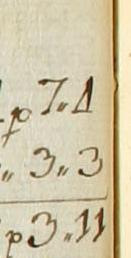 p 7 〃 1
〃 3 〃 3
p 3 〃 11